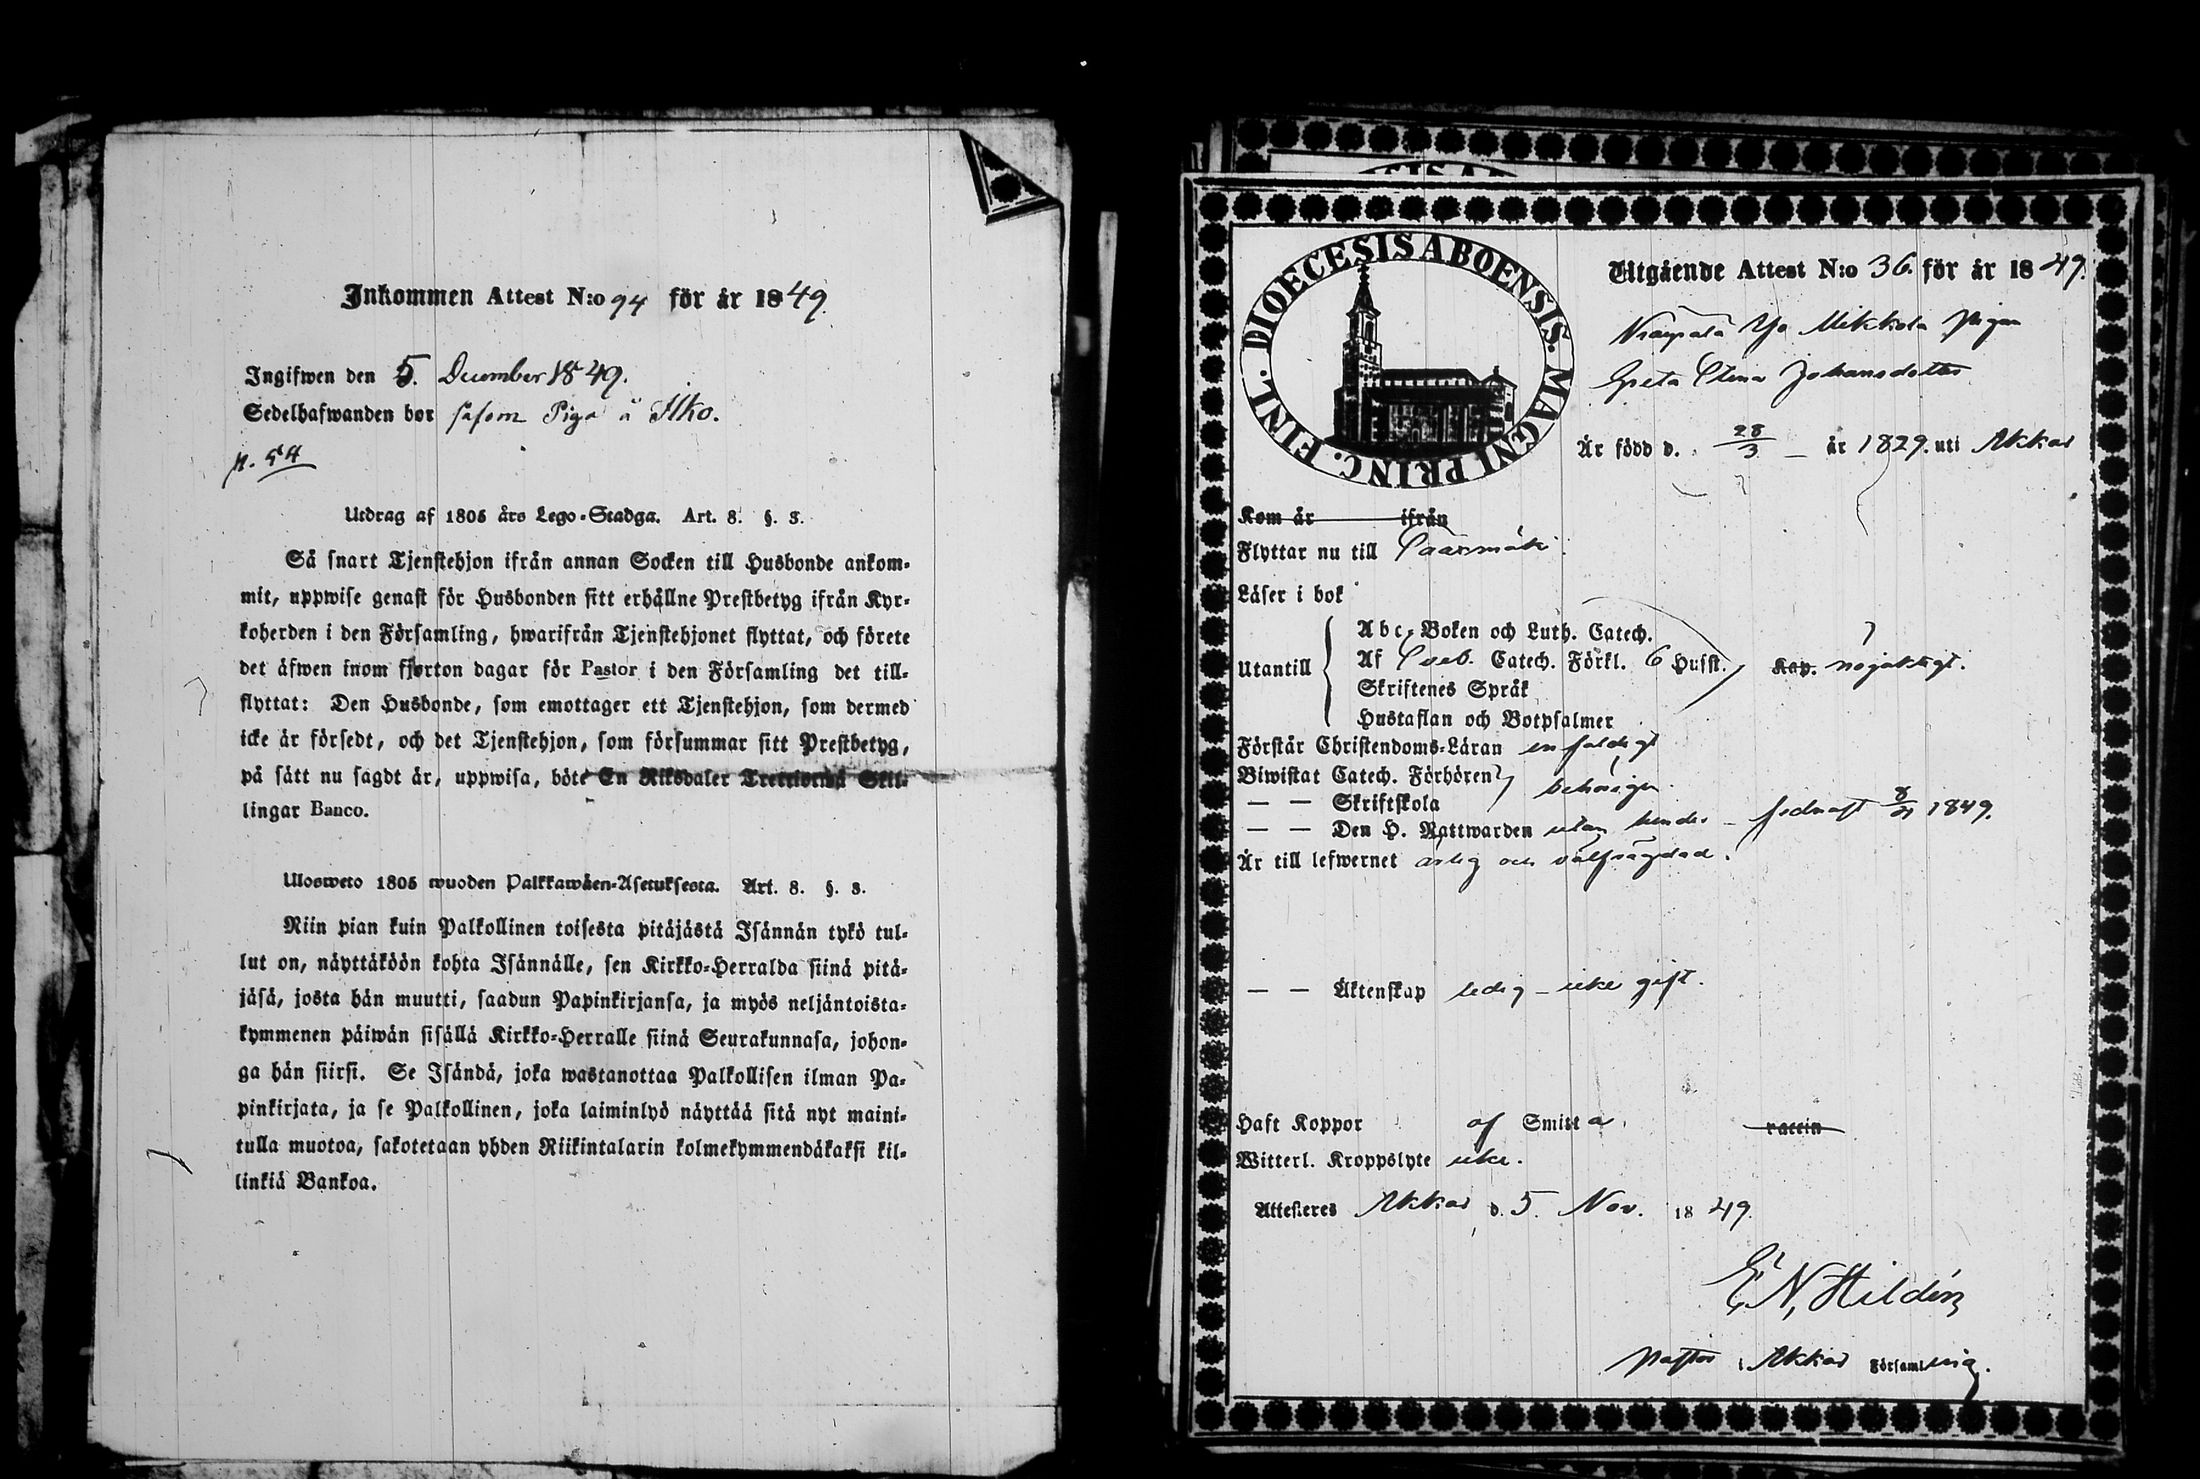 Inkommen Attest N:o 94 för år 1849.
Ingifwen den 5. December 1849.
Sedelhafwanden bor såsom Piga å Ilko.
p. 54
Utdrag af 1805 års Lego-Stadga. Art. 8. §. 3.
Så snart Tjenstehjon ifrån annan Socken till Husbonde ankom-
mit, uppwise genast för Husbonden sitt erhållne Prestbetyg ifrån Kyr-
koherden i den Församling, hwarifrån Tjenstehjonet flyttat, och förete
det äfwen inom fjorton dagar för Pastor i den Församling det till-
flyttat: Den Husbonde, som emottager ett Tjenstehjon, som dermed
icke är försedt, och det Tjenstehjon, som försummar sitt Prestbetyg,
på sätt nu sagdt är, uppwisa, böte En Riksdaler Trettiotvå Skil-
lingar Banco.
Ulosweto 1805 wuoden Palkkawäen-Asetuksesta. Art. 8. §. 3.
Niin pian kuin Palkollinen toisesta pitäjästä Isännän tykö tul-
lut on, näyttäköön kohta Isännälle, sen Kirkko-Herralda siinä pitä-
jäsä, josta hän muutti, saadun Papinkirjansa, ja myös neljäntoista-
kymmenen päiwän sisällä Kirkko-Herralle siinä Seurakunnasa, johon-
ga hän siirsi. Se Isändä, joka wastanottaa Palkollisen ilman Pa-
pinkirjata, ja se Palkollinen, joka laiminlyö näyttää sitä nyt maini-
tulla muotoa, sakotetaan yhden Riikintalarin kolmekymmendäkaksi kil-
linkiä Bankoa.
DIOECESIS ABOENSIS. MAGNI PRINC. FINL.
Utgående Attest N:o 36. för år 1849.
Mikkola Pigan
Greta Stina Johansdotter
Är född d. 28/3 år 1829. uti Akkas
Kom år ifrån
Flyttar nu till Säärmäki
Läser i bok
Utantill
Abc-Boken och Luth. Catech.
Af Sveb. Catech. Förkl. 6 Hufst. Kap. nöjaktigt.
Skriftenes Språk
Hustaflan och Botpsalmer
Förstår Christendoms-Läran enfaldigt
Biwistat Catech. Förhören
— — Skriftskola behörigen
— — Den H. Nattwarden utan hinder - sednast 1849.
Är till lefwernet ärlig och välfrägdad.
— — Äktenskap ledig - icke gift.
Haft Koppor af Smitta. vaccin
Witterl. Kroppslyte icke.
Attesteres Akkas d. 5. Nov. 1849.
E N, Hildén
Pastor i Akkas Församling.